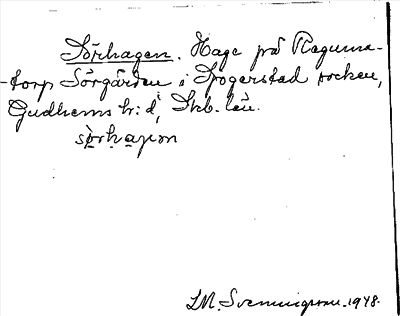 Sörhagen. Hage på Ragnna-
-torp Sörgården i Segerstad socken,
Gudhems h:d, Skb. län.
sö̀rhaɡən
I.M. Svenningsson. 1948.